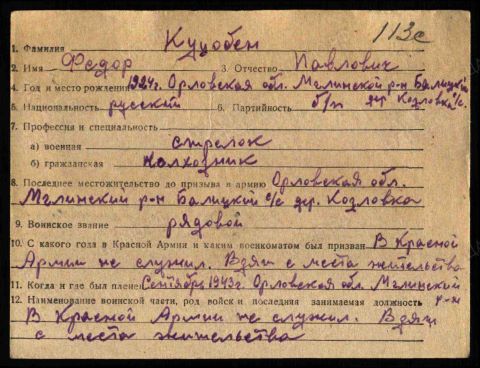 113с
1. Фамилия Куцобен
2. Имя Федор 3. Отчество Павлович
4. Год и место рождения 1924г. Орловская обл. Мглинской р-н Балицкий с/с.
5. Национальность русский 6. Партийность б/п дер Козловка
7. Профессия и специальность
а) военная стрелок
б) гражданская колхозник
8. Последнее местожительство до призыва в армию Орловская обл.
Мглинский р-н Балицкий с/с дер. Козловка
9. Воинское звание рядовой
10. С какого года в Красной Армии и каким военкоматом был призван В Красной
Армии не служил. Взят с места жительства
11. Когда и где был пленен Сентябрь 1943г. Орловская обл. Мглинский
р-н
12. Наименование воинской части, род войск и последняя занимаемая должность
В Красной Армии не служил. Взят
с места жительства